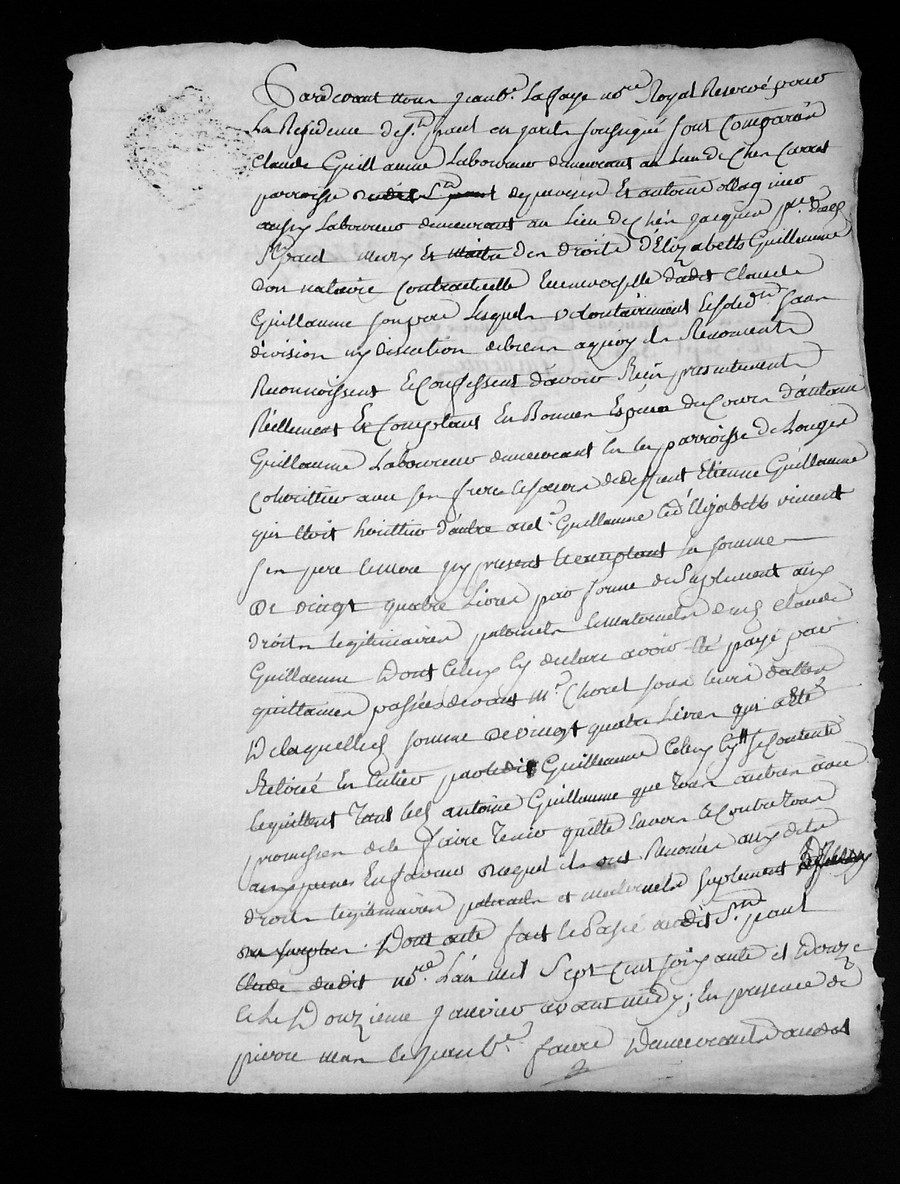 Pardevant nous jean b.te Lafaye no.re Royal Reservé pour
La Residence de S.t paul en jarets soussigné sont Comparûs
Claude Guillaume Laboureur demeurant au Lieu de Chen
parroisse et antoine ollagnier
aussy Laboureur demeurant au Lieu de Chés jacques p.sse dud
S.t paul mary Et maitre des droits d'Elizabeth Guillaume
donnataire Contractuelle universelle dudit Claude
Guillaume son pere Lesquels volontairement Et solid.nt sans
division ny discution de biens a quoy ils Renoncent
Reconnoissent & Confessent d'avoir Reçû presentement
Réellement Et Comptant En Bonnes Especes du Cours d'antoine
Guillaume Laboureur demeurant En la parroisse de
Cohérittier avec ses freres & soeurs de deffunt Etienne Guillaume
qui étoit hérittier d'autre Guillaume & d'Elizabeth vincent
ses pere & mere icy present & acceptant la somme
De vingt quatre Livres par forme de suplement aux
droits legitimaires paternels & maternels dud Claude
Guillaume Dont Celuy Cy declare avoir été payé par
quittances passées devant M.e Chorel sous leurs dattes
De laquelle somme de vingt quatre Livres qui a été
Retirée En Entier par ledit Guillaume Celuy Cy se Contente
& quittent Tant led antoine Guillaume que Tous autres avec
promesse de le faire Tenir quitte Envers & Contre Tous
aux peines En faveur duquel ils ont Renoncé aux dits
droits legitimaires paternels et maternels suplement
Dont acte fait & Passé audit S.t paul
Etude dudit no.re L'an mil Sept Cent soixante et Douze
& Le Douzieme janvier avant midy; En presence de
pierre & jean b.te faure Demeurants audit